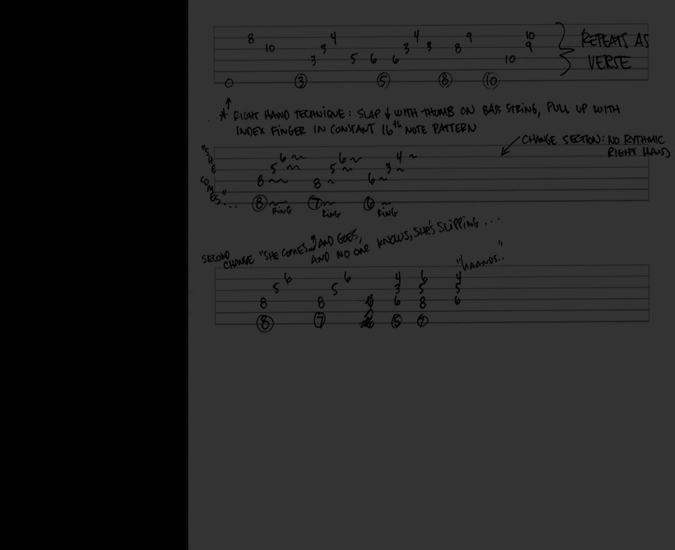 8 4 4 9 10
10 3 3 3 8 9
3 5 6 6 10
0 3 5 8 10
REPEATS AS
VERSE
* RIGHT HAND TECHNIQUE: SLAP ↓ WITH THUMB ON BASS STRING, PULL UP WITH
INDEX FINGER IN CONSTANT 16th NOTE PATTERN
CHANGE SECTION: NO RYTHMIC
RIGHT HAND
"SHE COMES"...
6 6 4
5 5 3
8 8 6
8 7 6
RING RING RING
SECOND
CHANGE "SHE COMES AND GOES,
AND NO ONE KNOWS, SHE'S SLIPPING ...
"HAANDS.."
6 6 4 6 4
5 5 3 5 5
8 8 6 8 6
8 7 5 7